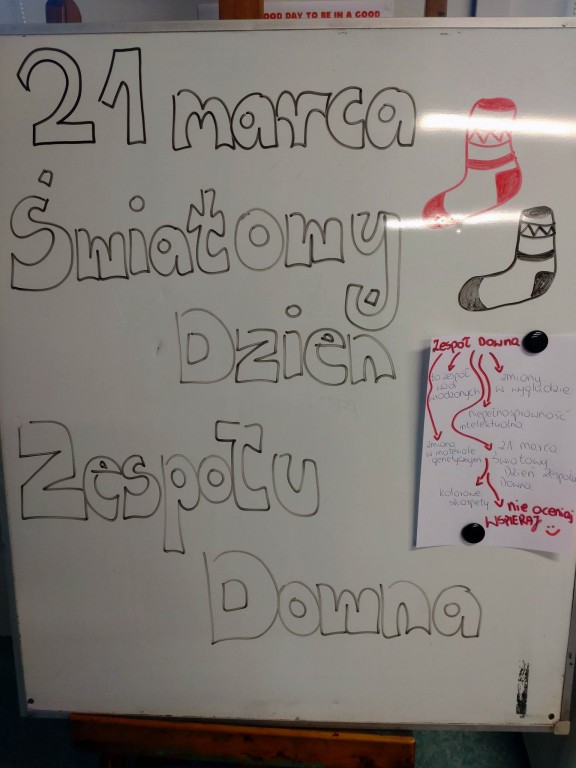 OOD DAY TO BE IN A GOOD
21 marca
Światowy
Dzień
Zespołu
Downa
Zespół Downa
to zespół
wad
wrodzonych
zmiany
w wyglądzie
niepełnosprawność
intelektualna
zmiana
w materiale
genetycznym
21 marca
Światowy
Dzień Zespołu
Downa
kolorowe
skarpety
nie oceniaj
WSPIERAJ